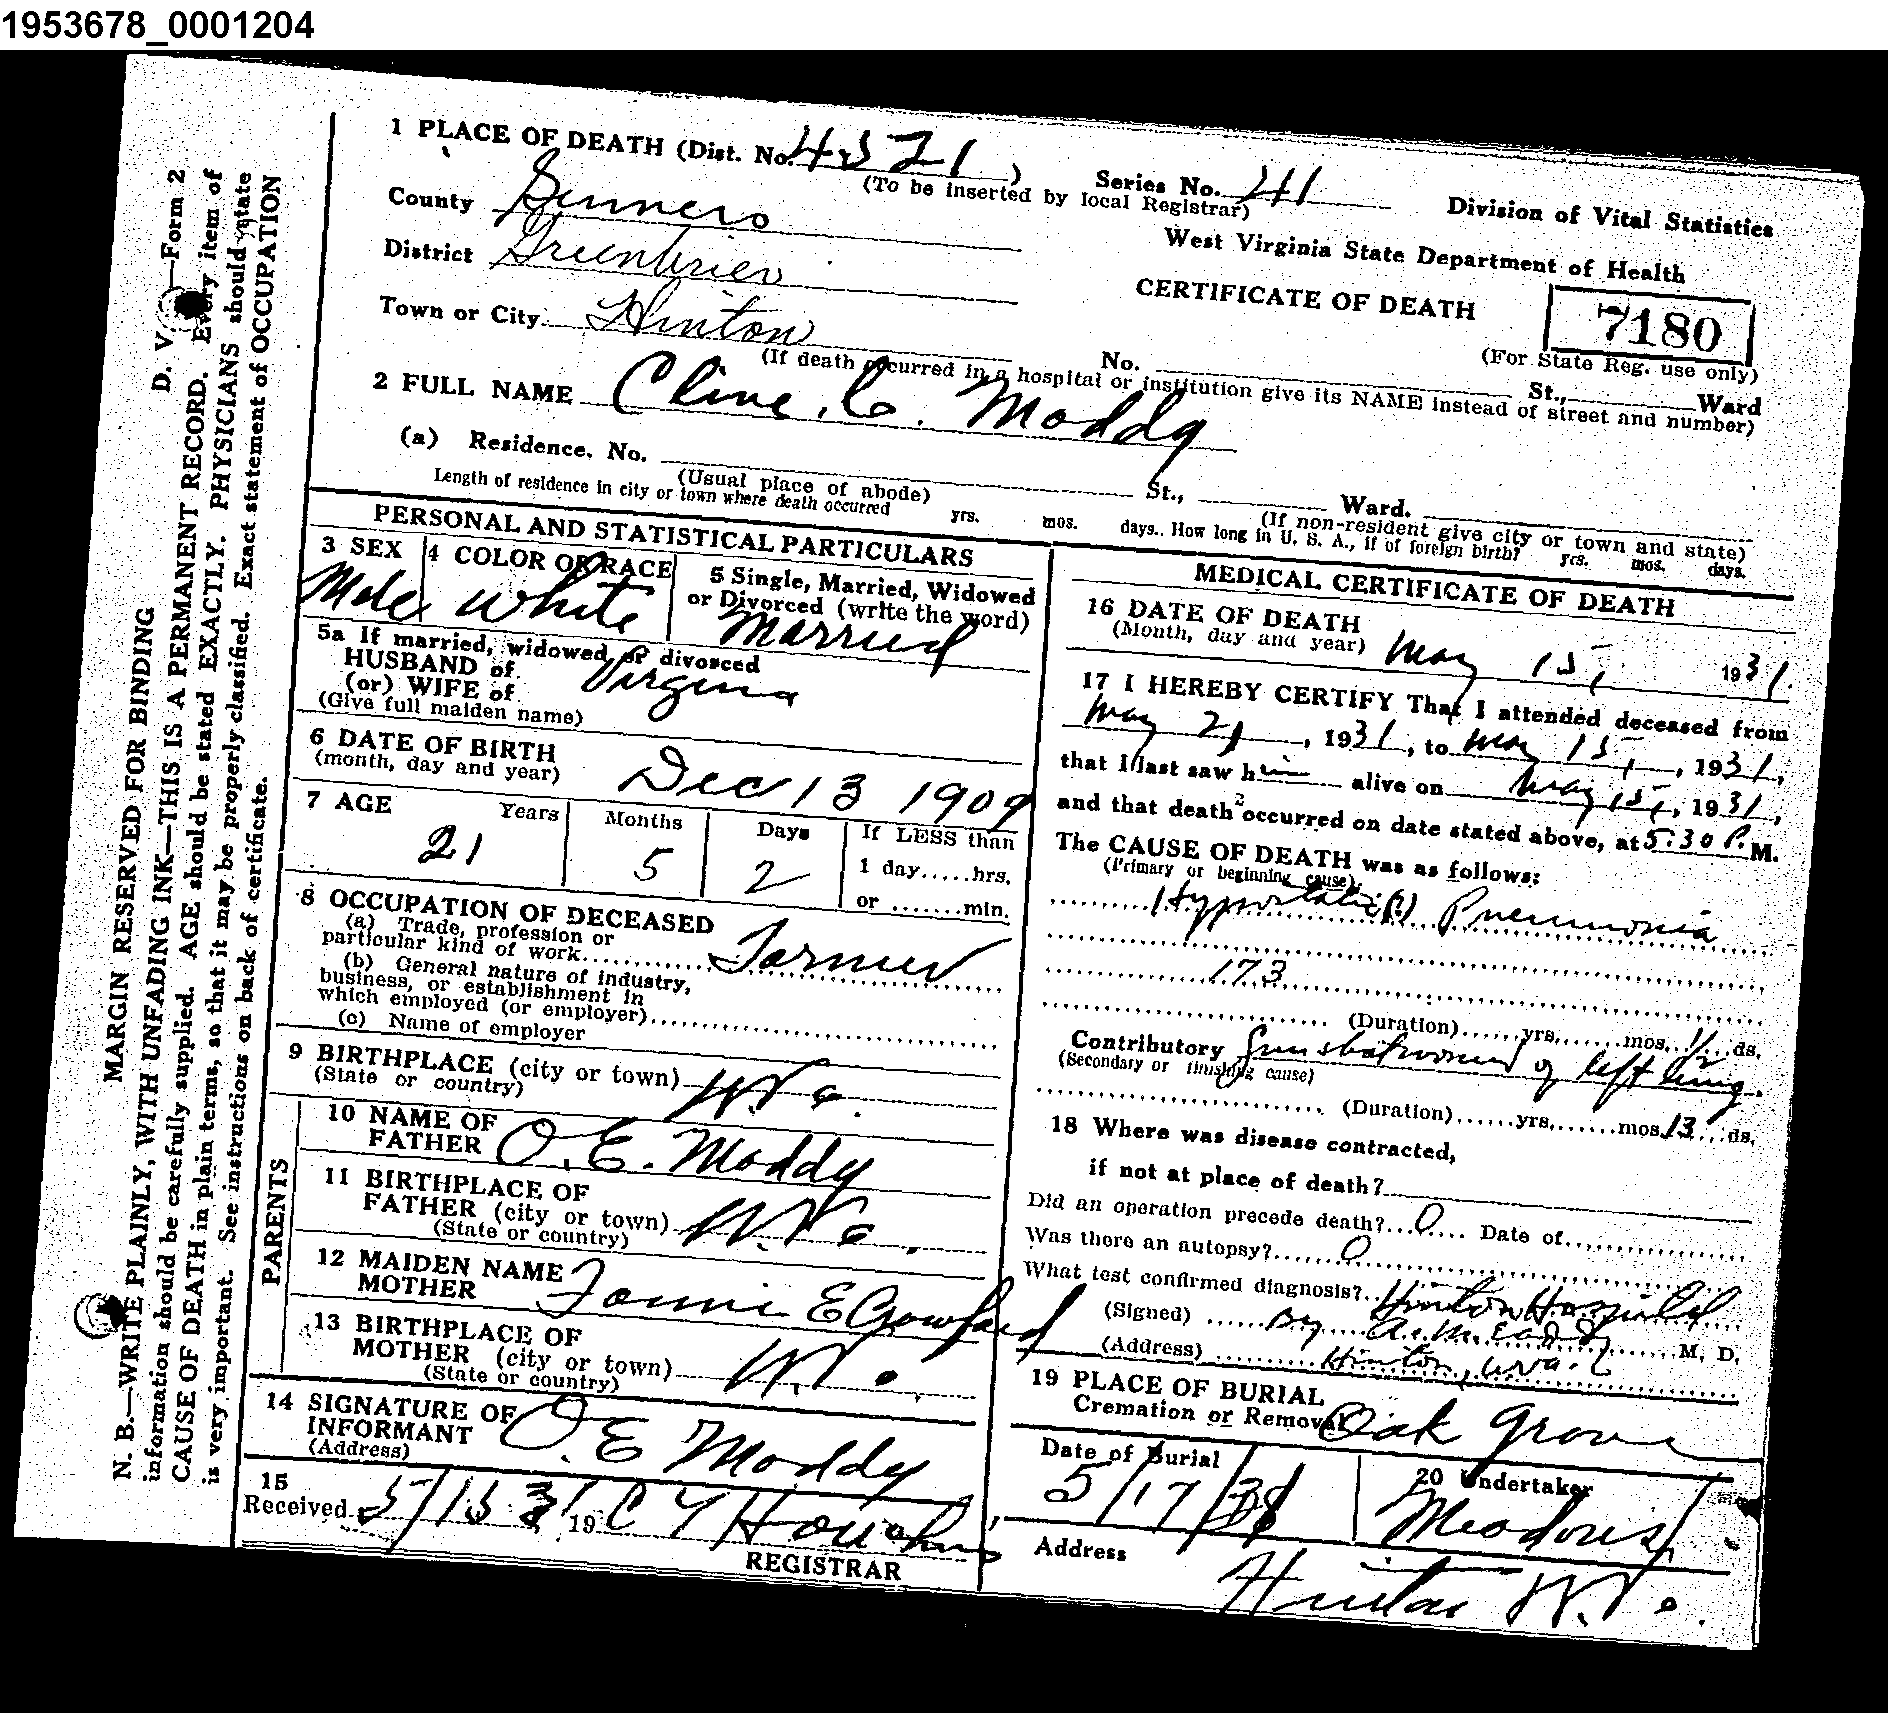 1953678_0001204
1 PLACE OF DEATH (Dist. No. 4521)
(To be inserted by local Registrar)
Series No. 41
Division of Vital Statistics
County
District Greenbrier
West Virginia State Department of Health
Town or City Hinton
CERTIFICATE OF DEATH
7180
(For State Reg. use only)
No. St., Ward
(If death occurred in a hospital or institution give its NAME instead of street and number)
2 FULL NAME Cline C. Moddy
(a) Residence. No. St., Ward.
(Usual place of abode)
(If non-resident give city or town and state)
Length of residence in city or town where death occurred yrs. mos. days.. How long in U. S. A., if of foreign birth? yrs. mos. days.
PERSONAL AND STATISTICAL PARTICULARS
3 SEX
Male
4 COLOR OR RACE
White
5 Single, Married, Widowed
or Divorced (write the word)
Married
5a If married, widowed, or divorced
HUSBAND of
(or) WIFE of
(Give full maiden name)
Virgina
6 DATE OF BIRTH
(month, day and year)
Dec 13 1909
7 AGE
Years
21
Months
5
Days
2
If LESS than
1 day.....hrs.
or .......min.
8 OCCUPATION OF DECEASED
(a) Trade, profession or
particular kind of work Farmer
(b) General nature of industry,
business, or establishment in
which employed (or employer)
(c) Name of employer
9 BIRTHPLACE (city or town) W. Va.
(State or country)
PARENTS
10 NAME OF
FATHER O. E. Moddy
11 BIRTHPLACE OF
FATHER (city or town) W. Va.
(State or country)
12 MAIDEN NAME
MOTHER Fannie E
13 BIRTHPLACE OF
MOTHER (city or town) W. Va.
(State or country)
14 SIGNATURE OF
INFORMANT O. E Moddy
(Address)
15
Received 5/15 31 19 C Y
REGISTRAR
MEDICAL CERTIFICATE OF DEATH
16 DATE OF DEATH
(Month, day and year) May 15, 1931.
17 I HEREBY CERTIFY That I attended deceased from
May 2, 1931, to May 15, 1931,
that I last saw him alive on May 15, 1931,
and that death occurred on date stated above, at 5:30 P. M.
The CAUSE OF DEATH was as follows:
(Primary or beginning cause)
Hypostatic(?) Pneumonia
173
(Duration)......yrs.......mos. ds.
Contributory Gunshot wound of left lung.
(Secondary or finishing cause)
(Duration)......yrs.......mos. 13 ds.
18 Where was disease contracted,
if not at place of death?
Did an operation precede death? 0 Date of
Was there an autopsy? 0
What test confirmed diagnosis?
Hinton Hospital
(Signed) By M. D.
(Address) Hinton, W Va.
19 PLACE OF BURIAL
Cremation or Removal Oak Grove
Date of Burial
5/17/31
20 Undertaker
Meadows
Address
Hinton W. Va.
MARGIN RESERVED FOR BINDING
D. V. —Form 2
N. B.—WRITE PLAINLY, WITH UNFADING INK—THIS IS A PERMANENT RECORD. Every item of
information should be carefully supplied. AGE should be stated EXACTLY. PHYSICIANS should state
CAUSE OF DEATH in plain terms, so that it may be properly classified. Exact statement of OCCUPATION
is very important. See instructions on back of certificate.